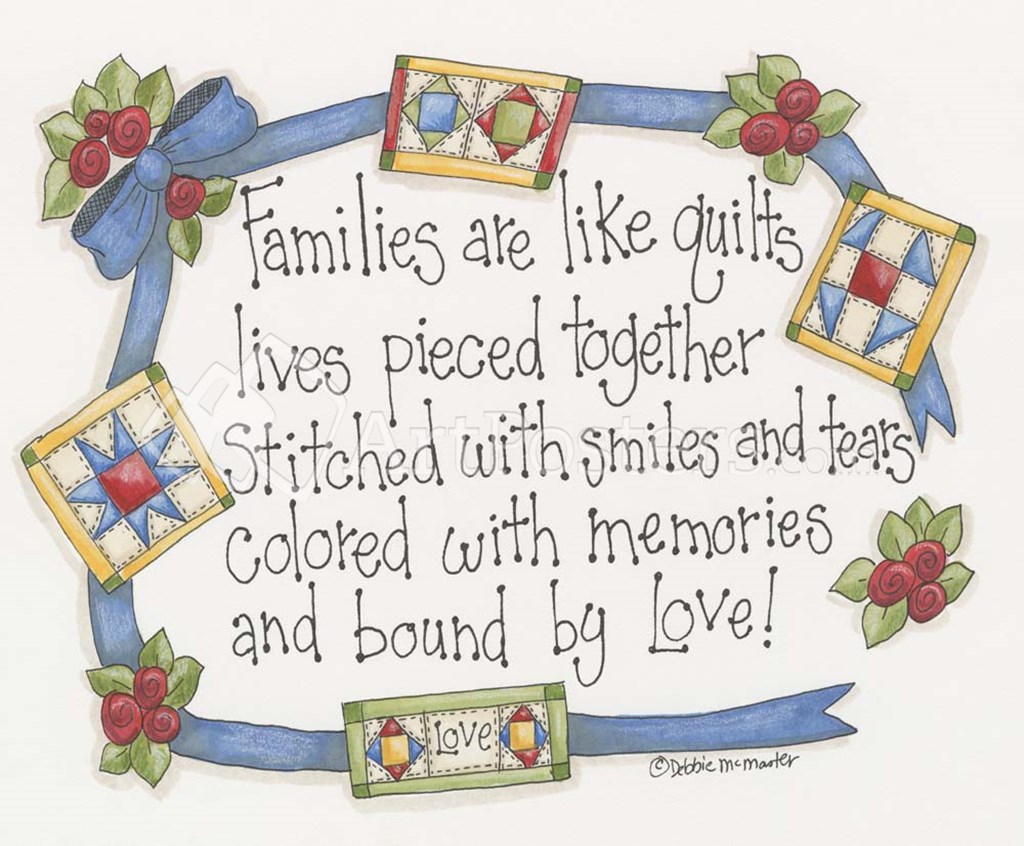 Families are like quilts
lives pieced together
Stitched with smiles and tears
colored with memories
and bound by Love!
Love
© Debbie McMaster
ArtPosters.com